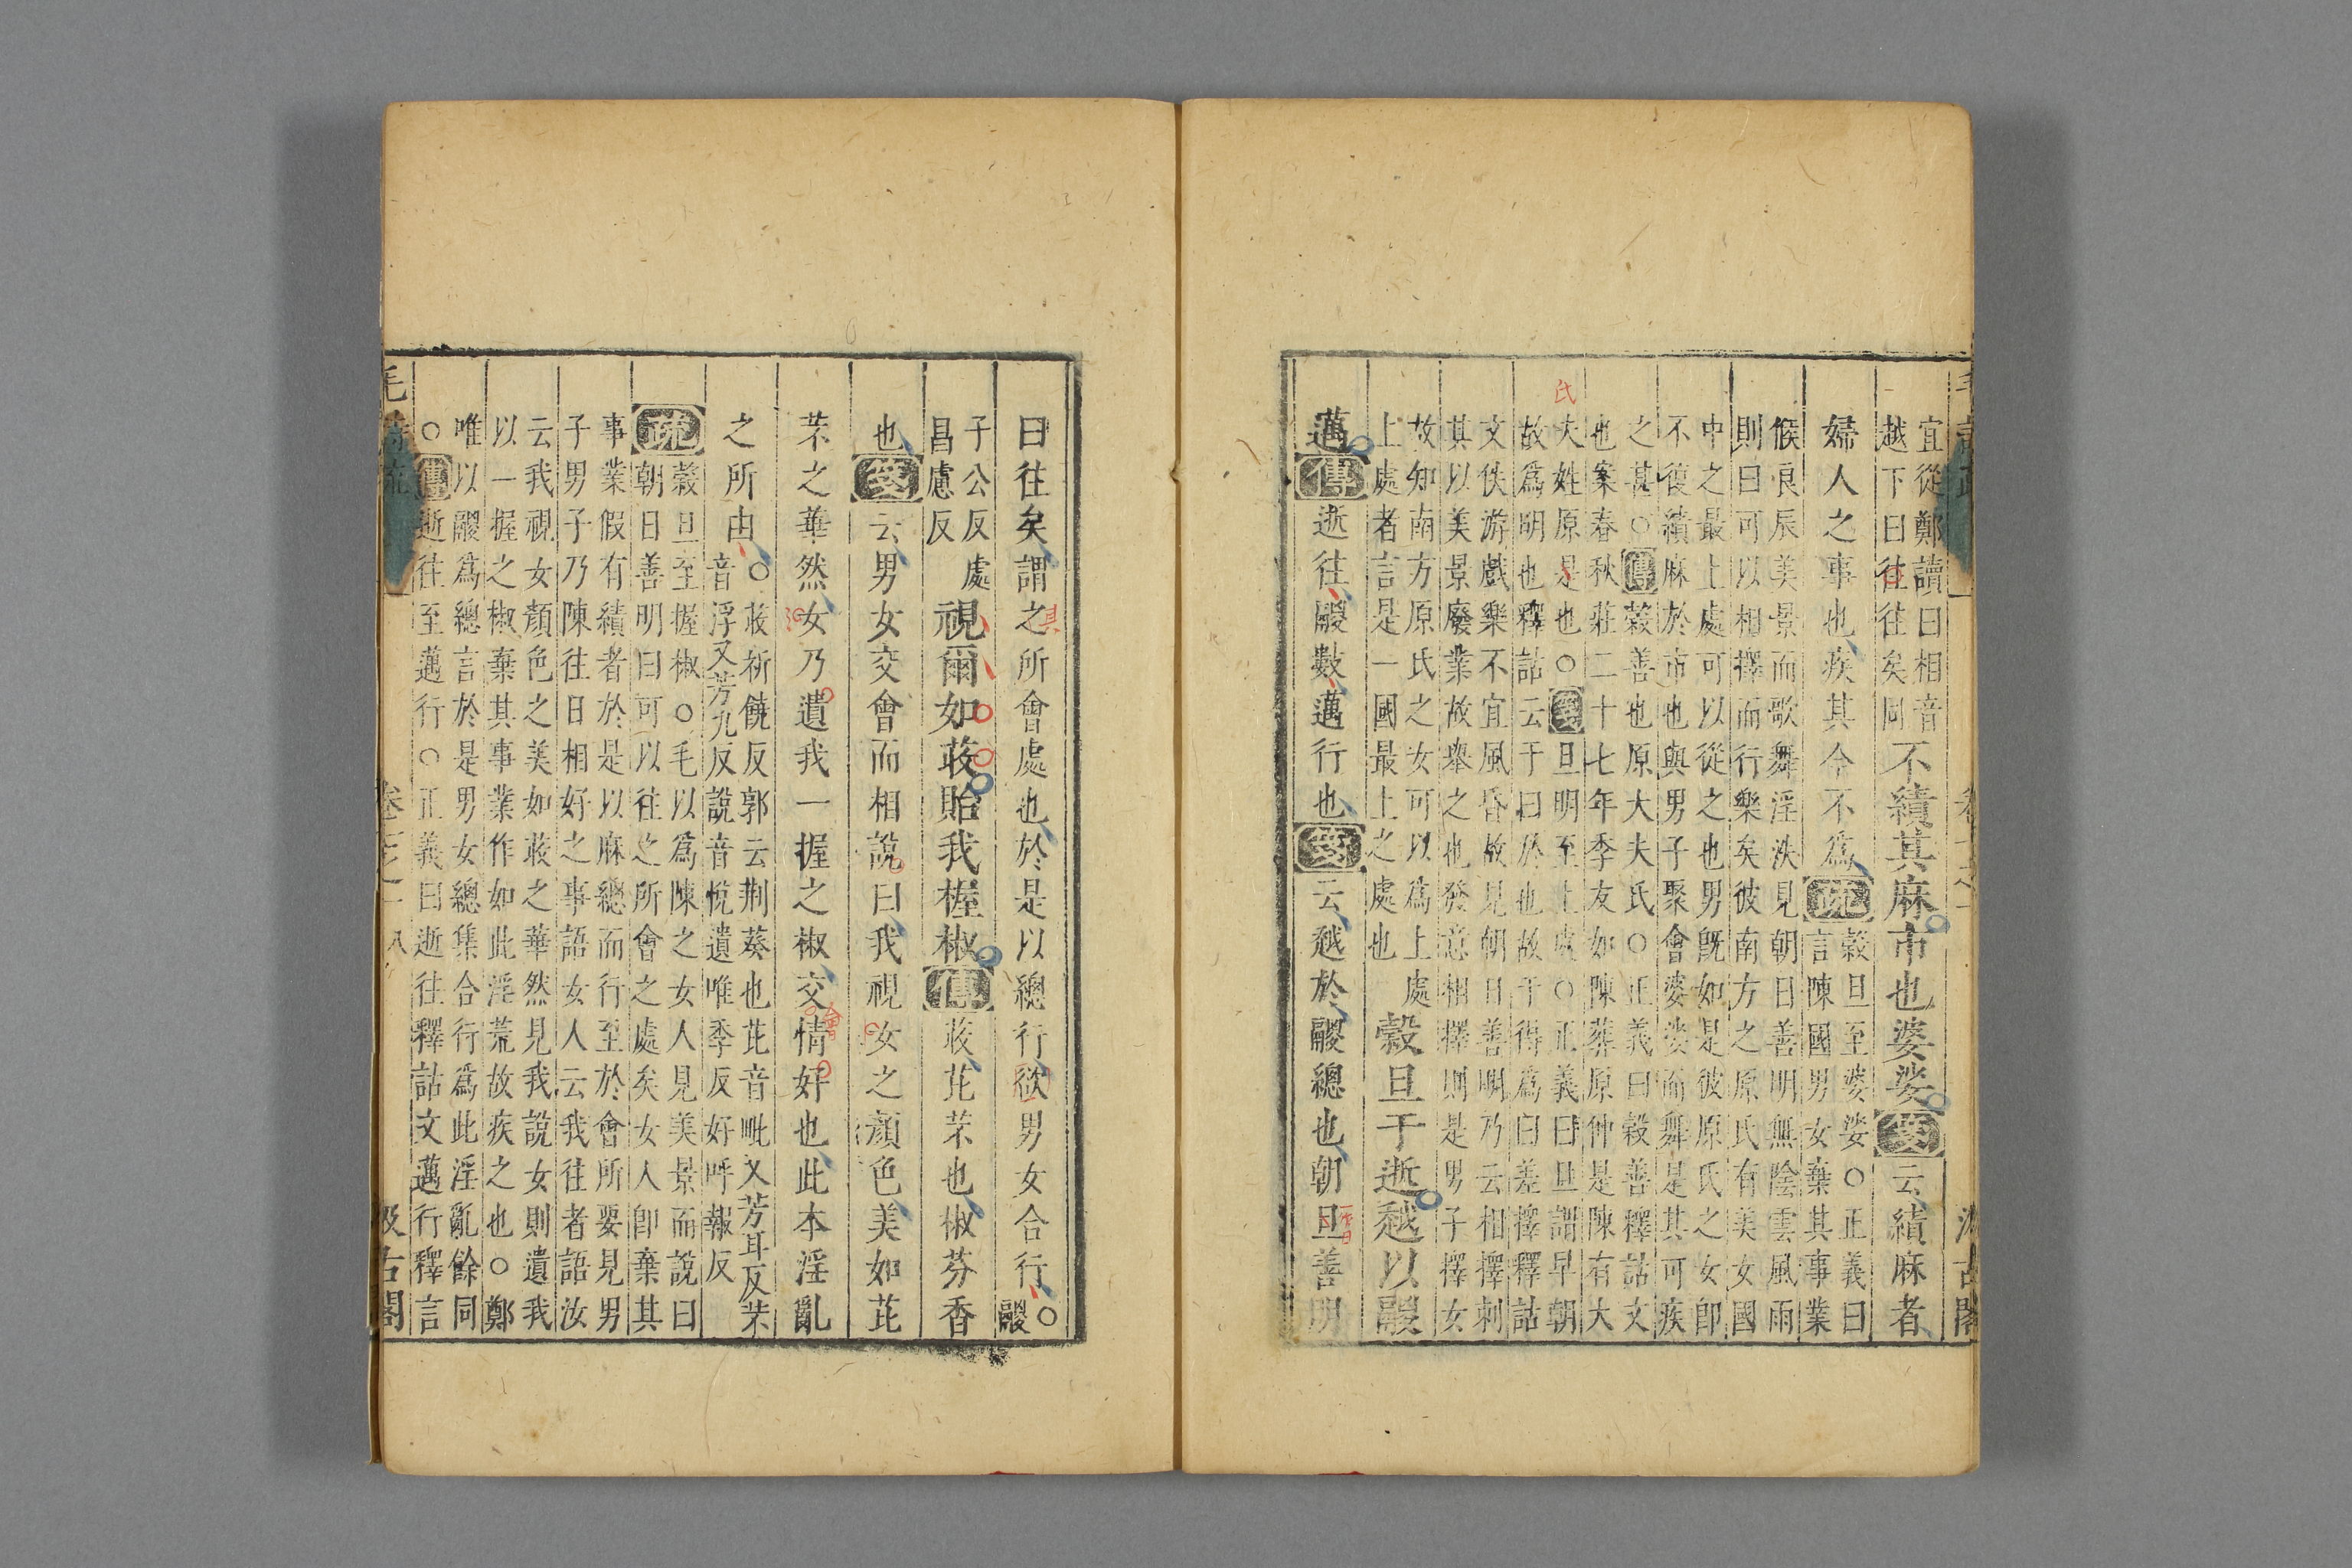 宜從鄭讀曰相音
越下曰往往矣同
不績其麻市也婆娑箋云績麻者
婦人之事也疾其今不爲疏
穀旦至婆娑○正義曰
言陳國男女棄其事業
候良辰美景而歌舞淫泆見朝日善明無陰雲風雨
則曰可以相擇而行樂矣彼南方之原氏有美女國
中之最上處可以從之也男旣如是彼原氏之女卽
不復績麻於市也與男子聚會婆娑而舞是其可疾
之甚○傳穀善也原大夫氏○正義曰穀善釋詁文
也案春秋莊二十七年季友如陳葬原仲是陳有大
夫姓原是也○箋旦明至上處○正義曰旦謂早朝
故爲明也釋詁云于曰於也故于得爲曰差擇釋詁
文佚游戲樂不宜風昏故見朝日善明乃云相擇刺
其以美景廢業故舉之也發意相擇則是男子擇女
故知南方原氏之女可以爲上處
上處者言是一國最上之處也
穀旦于逝越以鬷
邁傳逝往鬷數邁行也箋云越於鬷總也朝旦善明
曰往矣謂之所會處也於是以總行欲男女合行○鬷
子公反處
昌慮反
視爾如荍貽我握椒傳荍芘芣也椒芬香
也箋云男女交會而相說曰我視女之顏色美如芘
芣之華然女乃遺我一握之椒交情好也此本淫亂
之所由○荍祈饒反郭云荆葵也芘音毗又芳耳反芣
音浮又芳九反說音悅遺唯季反好呼報反
疏穀旦至握椒○毛以爲陳之女人見美景而說曰
朝日善明曰可以往之所會之處矣女人卽棄其
事業假有績者於是以麻總而行至於會所要見男
子男子乃陳往日相好之事語女人云我往者語汝
云我視女顏色之美如荍之華然見我說女則遺我
以一握之椒棄其事業作如此淫荒故疾之也○鄭
唯以鬷爲總言於是男女總集合行爲此淫亂餘同
○傳逝往至邁行○正義曰逝往釋詁文邁行釋言